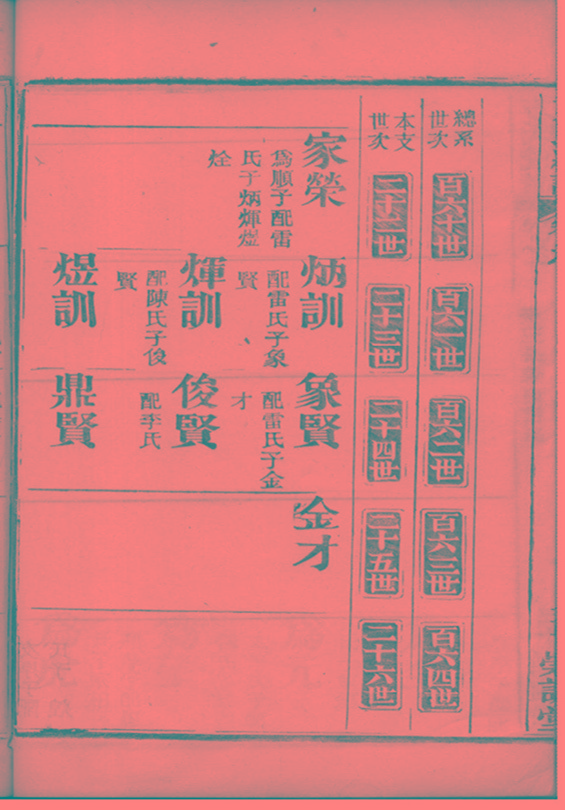 總系
世次
百六十世
百六一世
百六二世
百六三世
百六四世
本支
世次
二十二世
二十三世
二十四世
二十五世
二十六世
家榮
爲順子配雷
氏子炳煇煜
烇
炳訓
配雷氏子象
賢
象賢
配雷氏子金
才
金才
煇訓
配陳氏子俊
賢
俊賢
配李氏
煜訓
鼎賢